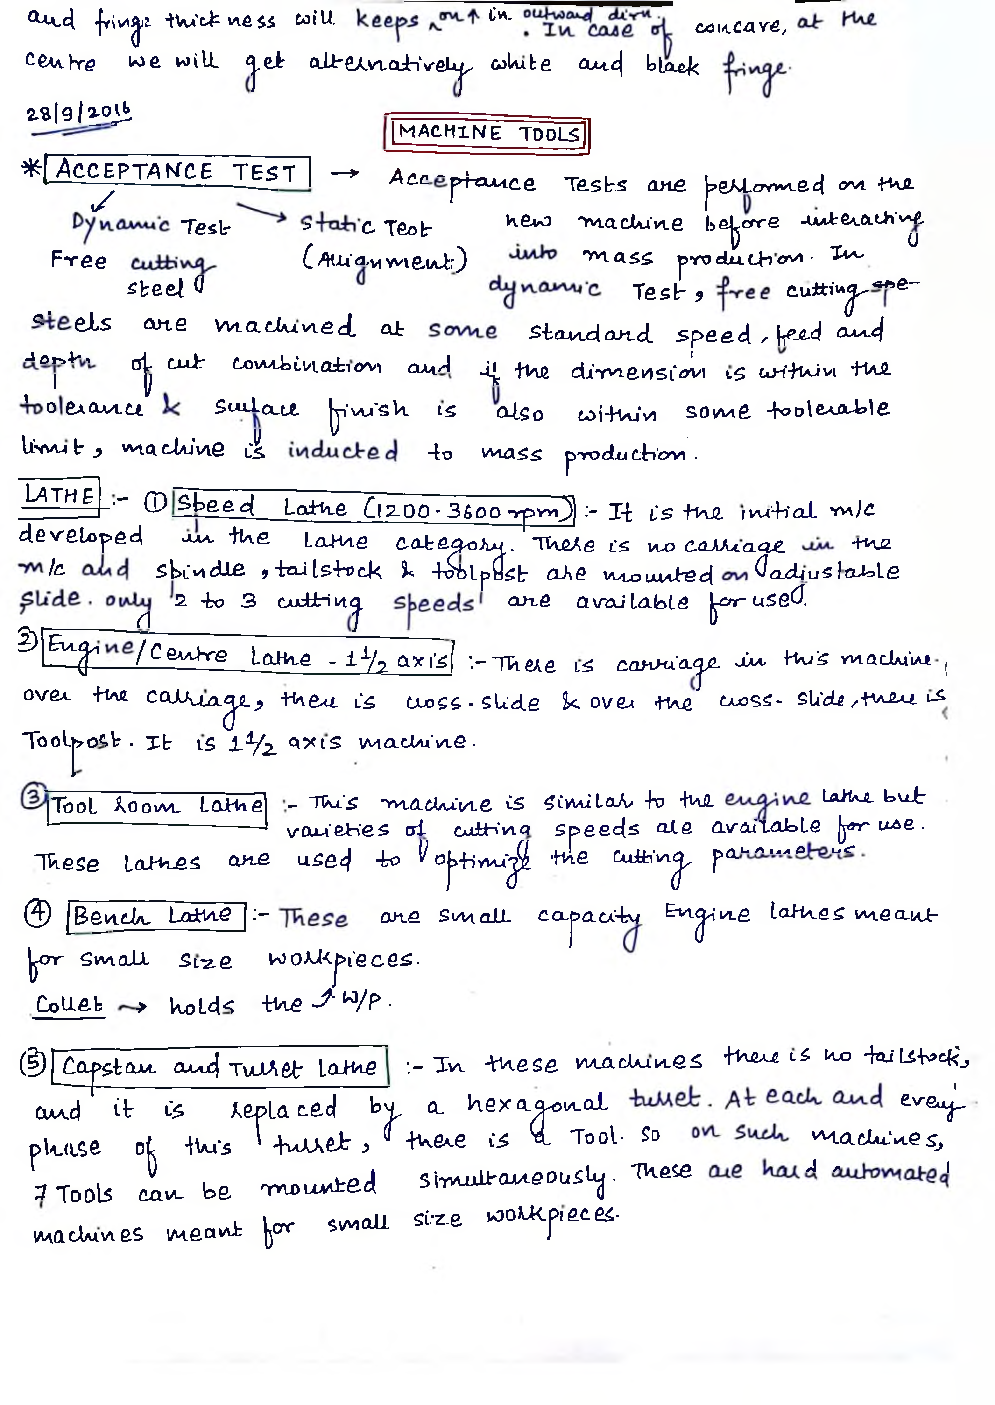 and fringe thickness will keeps on ↑ in outward dirn. In case of concave, at the
centre we will get alternatively white and black fringe.
28/9/2016
MACHINE TOOLS
* ACCEPTANCE TEST → Acceptance Tests are performed on the
Dynamic Test Static Test new machine before interacting
Free cutting (Alignment) into mass production. In
steel dynamic Test, free cutting spe-
steels are machined at some standard speed, feed and
depth of cut combination and if the dimension is within the
toolerance & surface finish is also within some toolerable
limit, machine is inducted to mass production.
LATHE :- ① Speed Lathe (1200-3600 rpm) :- It is the initial m/c
developed in the Lathe category. There is no carriage in the
m/c and spindle, tailstock & toolpost are mounted on adjustable
slide. only 2 to 3 cutting speeds are available for used.
2) Engine/Centre Lathe - 1 1/2 axis :- There is carriage in this machine.
over the carriage, there is cross-slide & over the cross-slide, there is
Toolpost. It is 1 1/2 axis machine.
③ Tool Room Lathe :- This machine is similar to the engine lathe but
varieties of cutting speeds are available for use.
These lathes are used to optimize the cutting parameters.
④ Bench Lathe :- These are small capacity Engine lathes meant
for small size workpieces.
Collet → holds the ↗ W/P.
⑤ Capstan and Turret Lathe :- In these machines there is no tailstock,
and it is replaced by a hexagonal turret. At each and every
phase of this turret, there is a Tool. So on such machines,
7 Tools can be mounted simultaneously. These are hard automated
machines meant for small size workpieces.